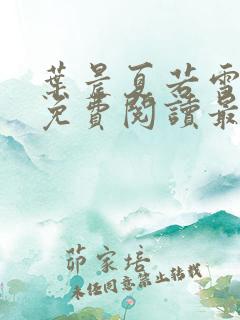 葉晨夏若雪
免費閱讀最
茆家培
未經同意禁止轉載